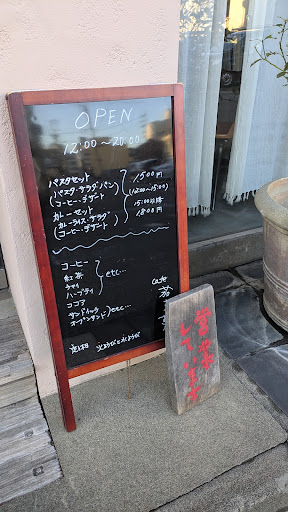 OPEN
12:00〜20:00
パスタセット
(パスタ・サラダ・パン
コーヒー・デザート)
1500円
(12:00〜15:00)
カレーセット
(カレーライス・サラダ
コーヒー・デザート)
15:00以降
1800円
コーヒー
紅茶
チャイ
ハーブティ
etc...
ココア
サンドイッチ
オープンサンド
etc...
cafe
定休日 火ようび・水ようび
営業
しています